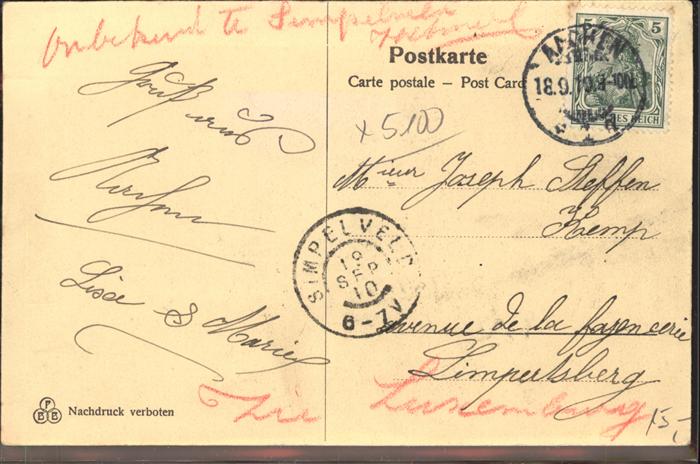 Onbekend te Simpelveld
Postkarte
Carte postale – Post Card
AACHEN
18.9.10.9-10N.
5 5
DEUTSCHES REICH
x 5100
Gruß aus
Aachen
Lisa & Marie
Mieur Joseph Steffen
Kemp
avenue de la fayencerie
Limpertsberg
SIMPELVELD
19
SEP
10
6-7V
Zie Luxemburg
15,
FBB
Nachdruck verboten